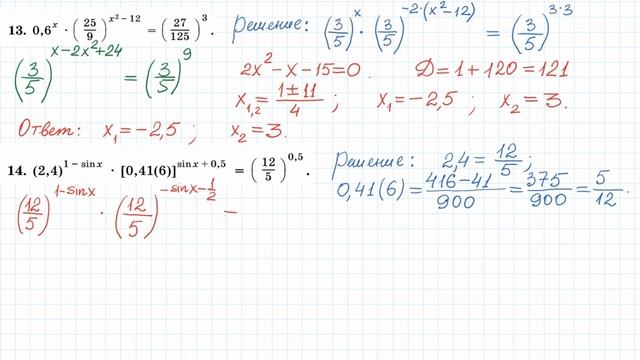 13. 0,6^x · (25/9)^(x²−12) = (27/125)^3. Решение: (3/5)^x · (3/5)^(−2·(x²−12)) = (3/5)^(3·3)
(3/5)^(x−2x²+24) = (3/5)^9 2x²−x−15=0. D=1+120=121
x₁,₂ = (1±11)/4; x₁=−2,5; x₂=3.
Ответ: x₁=−2,5; x₂=3.
14. (2,4)^(1−sin x) · [0,41(6)]^(sin x+0,5) = (12/5)^0,5. Решение: 2,4=12/5;
(12/5)^(1−sinx) · (12/5)^(−sinx−1/2) = 0,41(6)=(416−41)/900=375/900=5/12.